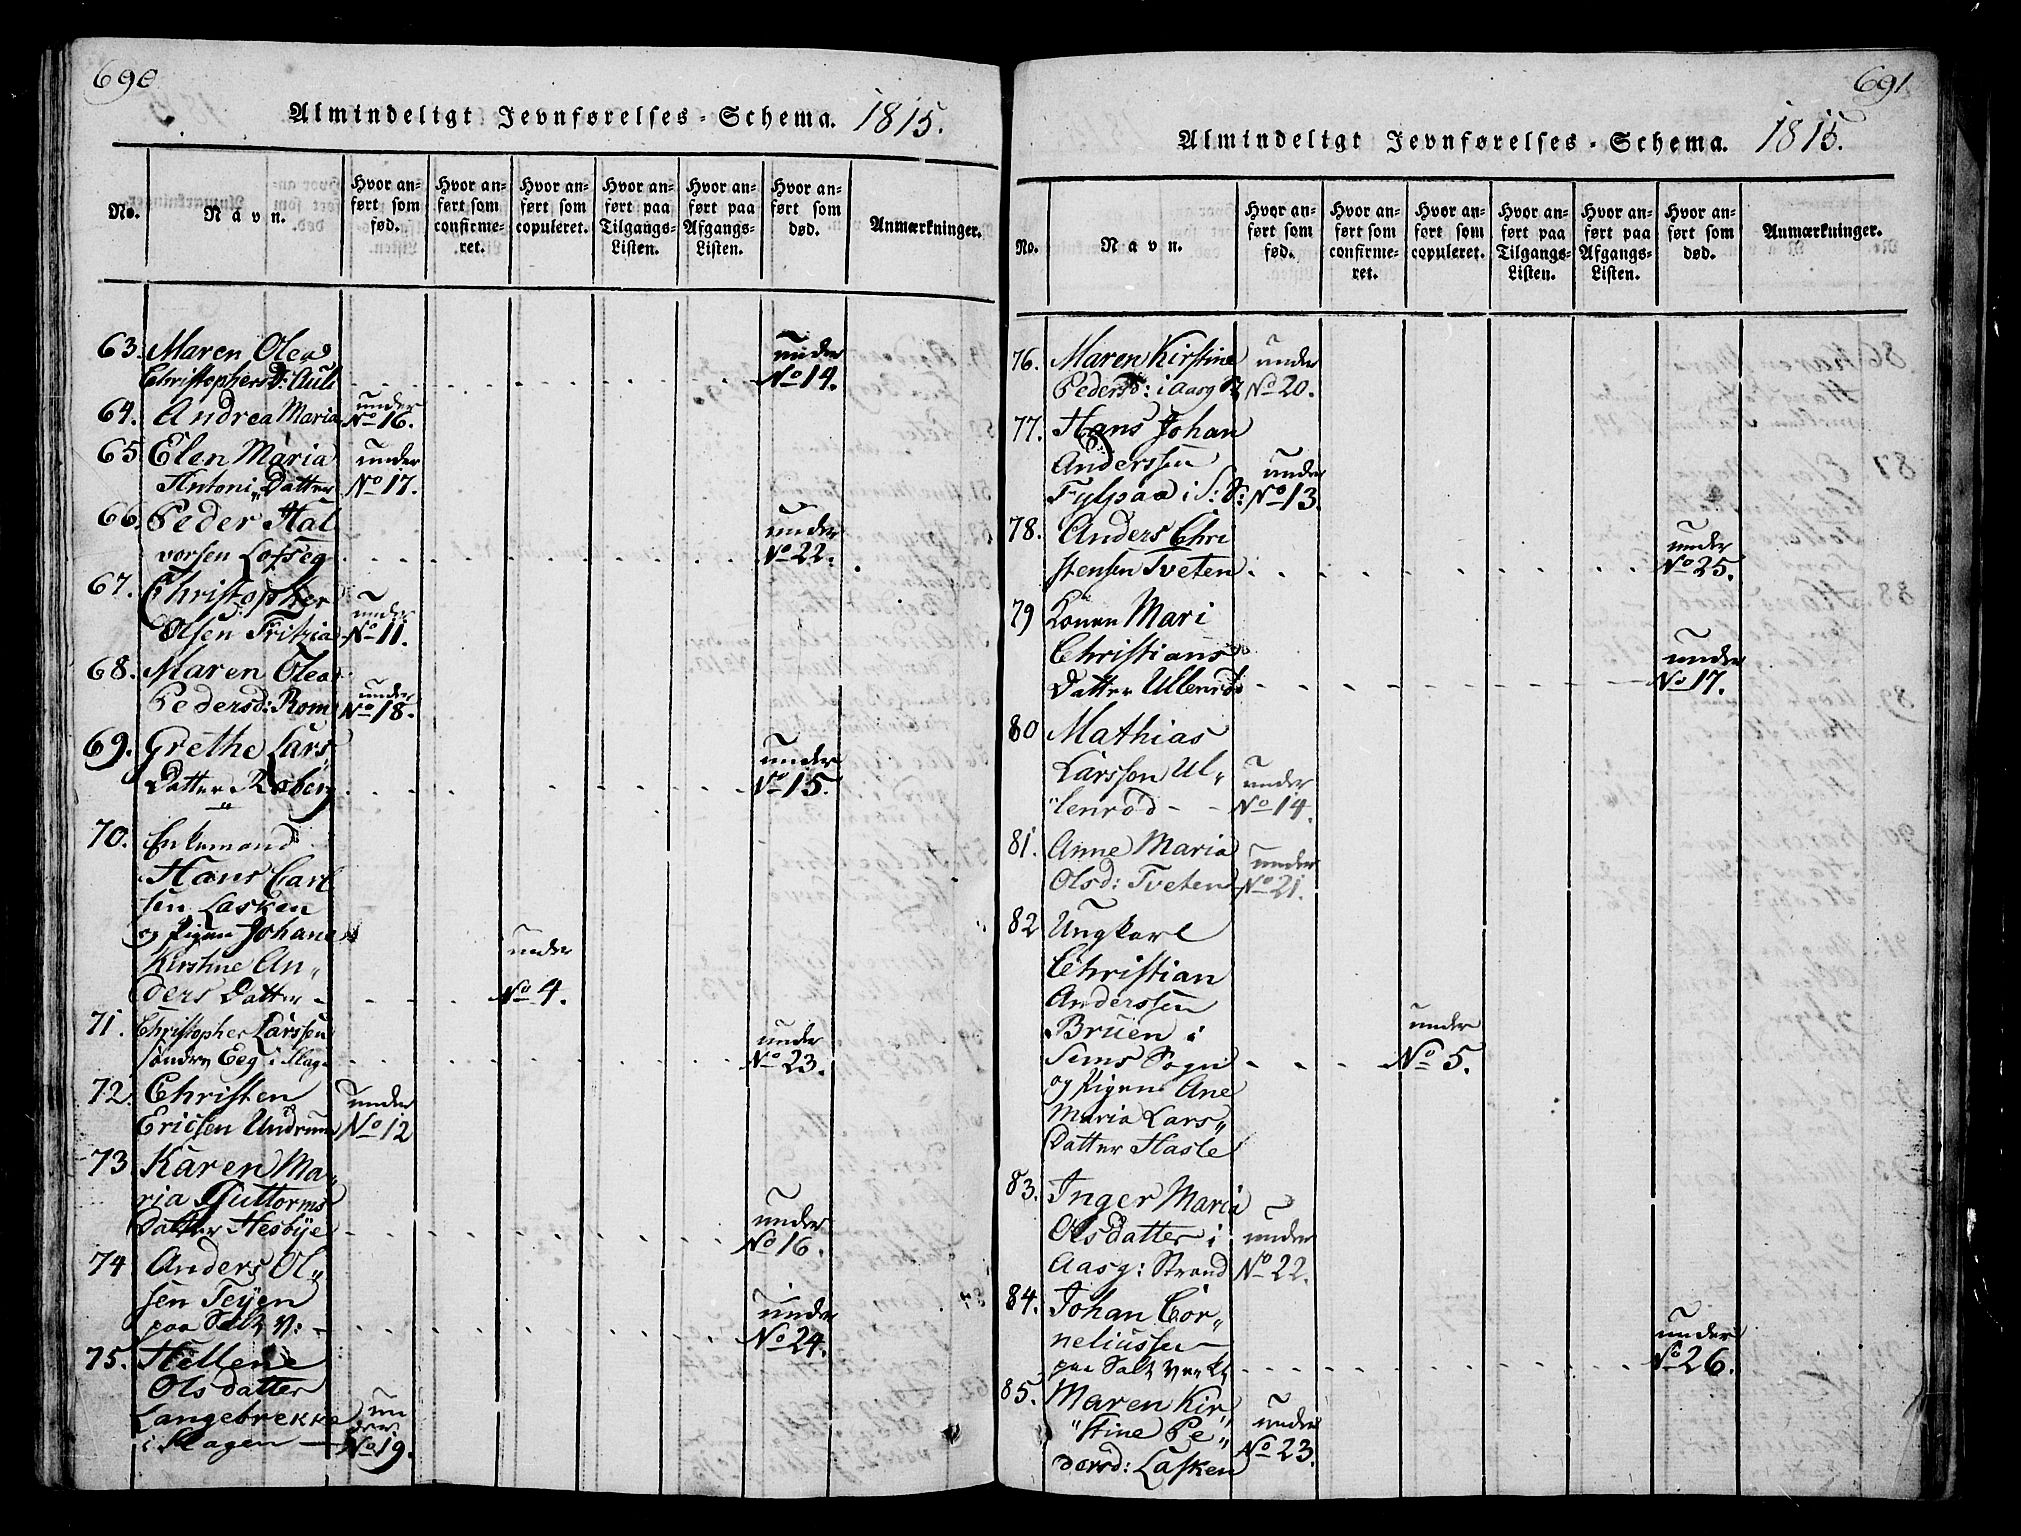 690
Almindeligt Jevnførelses-Schema. 1815.
No.
Navn.
Hvor anført som fød.
Hvor anført som confirmeret.
Hvor anført som copuleret.
Hvor anført paa Tilgangs-Listen.
Hvor anført paa Afgangs-Listen.
Hvor anført som død.
Anmærkninger.
63. Maren Olea under
Christophersd: Auli No 14.
64. Andrea Maria under No 16.
65 Elen Maria under
Antoni„Datter No 17.
66. Peder Hal under
vorsen Lofseg No 22.
67. Christopher under
Olsen Fritzia No 11.
68. Maren Olea under
Pedersd: Rom No 18.
69. Grethe Lars„ under
Datter Roberg No 15.
70. Enkemand
Hans Carl
sen Lasken
og Pigen Johane under
Kirstine An„
ders Datter No 4.
71. Christopher Larssen under
søndre Eeg i Slag. No 23.
72. Christen under
Ericsen Undrum No 12
73 Karen Ma„
ria Guttorms under
Datter Hesbye No 16.
74 Anders Ol„
sen Teyen under
paa Salt V: No 24.
75. Hellene
Olsdatter
Langebrekke un
i Slagen der No 19.
691
Almindeligt Jevnførelses-Schema. 1815.
No.
Navn.
Hvor anført som fød.
Hvor anført som confirmeret.
Hvor anført som copuleret.
Hvor anført paa Tilgangs-Listen.
Hvor anført paa Afgangs-Listen.
Hvor anført som død.
Anmærkninger.
76. Maren Kirstine under
Pedersd: i Aasg No 20.
77. Hans Johan
Anderssen under
Fylpaa i S: S: No 13.
78. Anders Chri under
stensen Tveten No 25.
79 Konen Mari
Christians under
Datter Ullenrød No 17.
80 Mathias
Larssen Ul„ under
„lenrød - - No 14.
81. Anne Maria under
Olsd: Tveten No 21.
82 Ungkarl
Christian
Anderssen
Bruen i under
Sems Sogn No 5.
og Pigen Ane
Maria Lars„
Datter Hasle
83. Inger Maria
Olsdatter i under
Aasg: Strand No 22.
84. Johan Cor„
neliussen under
paa Salt Verket No 26.
85. Maren Kir„
„stine Pe„ under
dersd: Lasken No 23.